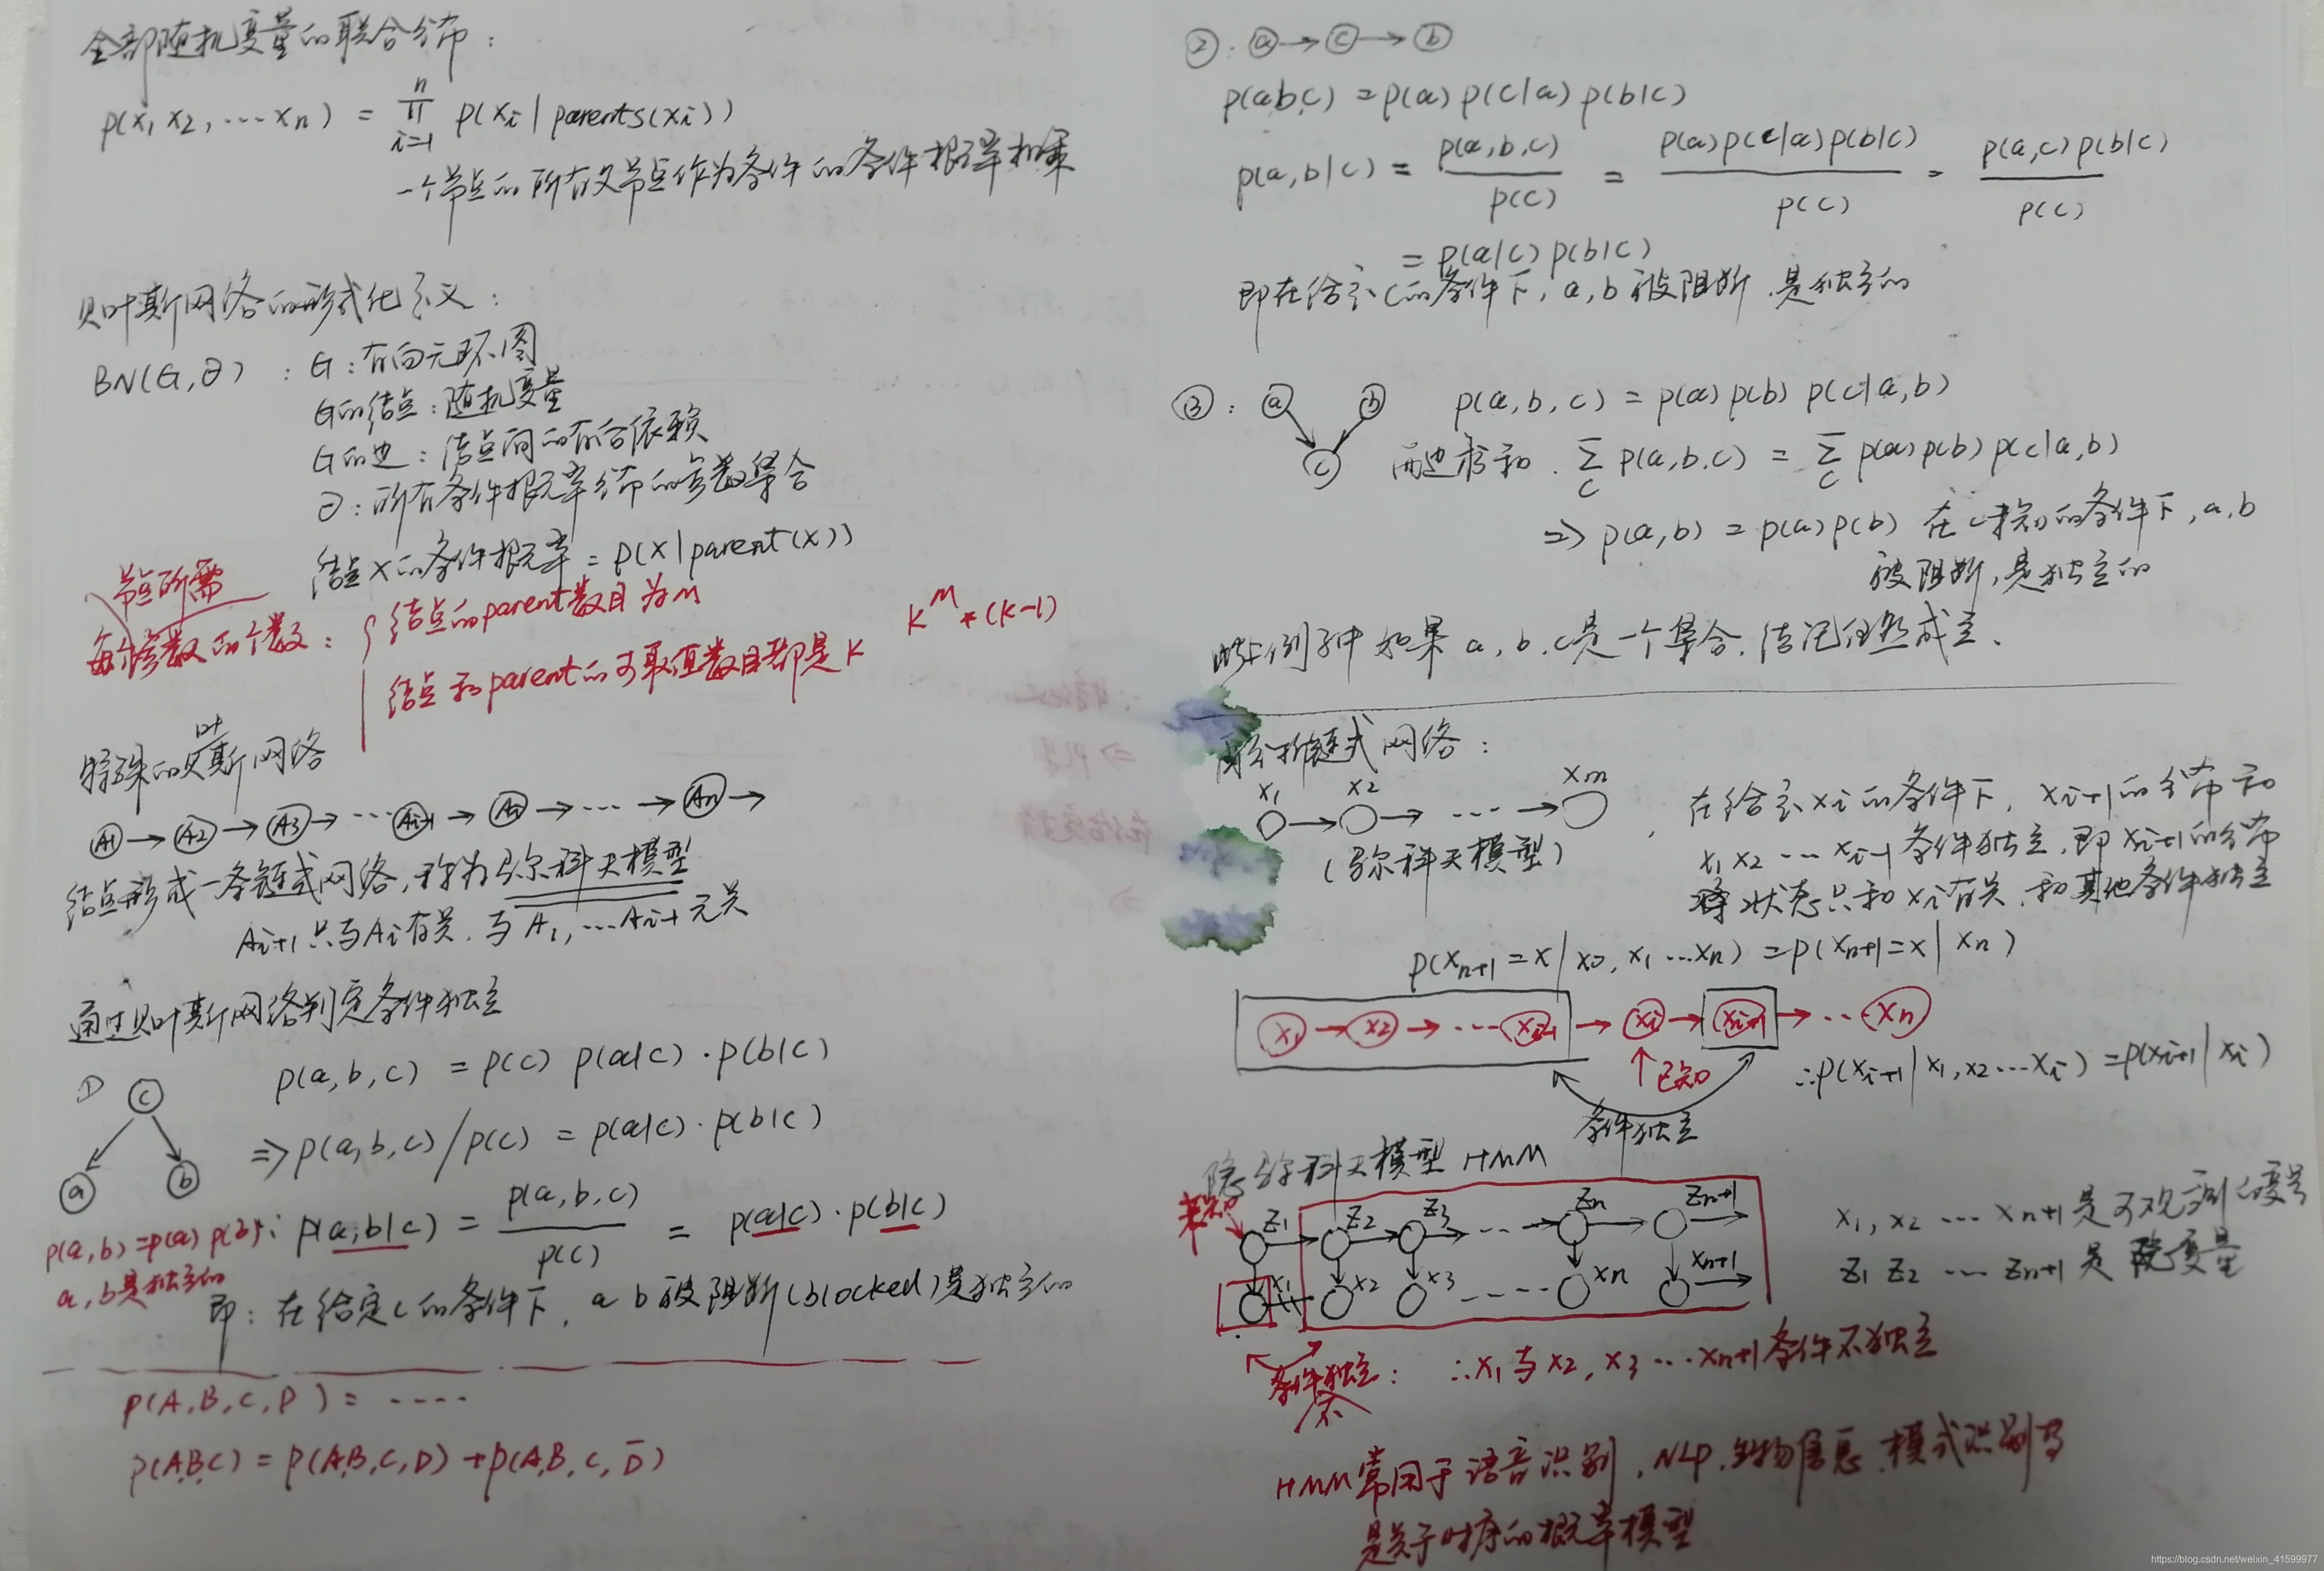 全部随机变量的联合分布：
p(x1 x2, ... xn) = ∏ p(xi | parents(xi))
n
i=1
一个节点的所有父节点作为条件的条件概率相乘
贝叶斯网络的形式化定义：
BN(G, Θ)：G：有向无环图
G的结点：随机变量
G的边：结点间的有向依赖
Θ：所有条件概率分布的参数集合
结点X的条件概率 = p(X | parent(X))
节点所需
每个参数的个数：
结点的parent数目为M
结点和parent的可取值数目都是K
K^M * (K-1)
特殊的贝叶斯网络
A1 → A2 → A3 → ... Ai-1 → Ai → ... → An →
结点形成一条链式网络，称为马尔科夫模型
Ai+1 只与Ai有关，与A1, ...Ai-1无关
通过贝叶斯网络判定条件独立
①
c
a b
p(a, b, c) = p(c) p(a|c) · p(b|c)
⇒ p(a, b, c) / p(c) = p(a|c) · p(b|c)
p(a,b)=p(a) p(b)
a, b是独立的
∴ p(a, b|c) = p(a, b, c) / p(c) = p(a|c) · p(b|c)
即：在给定c的条件下，a b 被阻断(blocked)是独立的
p(A, B, C, D) = .....
p(A,B,C) = p(A,B,C,D) + p(A,B,C,D̄)
②：a → c → b
p(a,b,c) = p(a) p(c|a) p(b|c)
p(a, b|c) = p(a,b,c) / p(c) = p(a) p(c|a) p(b|c) / p(c) = p(a,c) p(b|c) / p(c)
= p(a|c) p(b|c)
即在给定c的条件下，a, b 被阻断，是独立的
③：a b
c
p(a, b, c) = p(a) p(b) p(c|a, b)
两边求和，∑c p(a, b, c) = ∑c p(a) p(b) p(c|a, b)
⇒ p(a, b) = p(a) p(b) 在c未知的条件下，a, b
被阻断，是独立的
以上例子中 如果 a, b, c是一个集合，结论仍然成立、
链式网络：
x1 x2 xm
→ → ... →
(马尔科夫模型)
在给定xi的条件下，xi+1的分布和
x1 x2 ... xi-1 条件独立，即xi+1的分布
状态只和xi有关，和其他条件独立
p(xn+1 = x | x0, x1 ... xn) = p(xn+1 = x | xn)
x1 → x2 → ... xi-1 → xi → xi+1 → ... xn
↑已知
条件独立
∴p(xi+1 | x1, x2 ... xi) = p(xi+1 | xi)
隐马尔科夫模型 HMM
未知
z1 z2 z3 ... zn zn+1
x1 x2 x3 ... xn xn+1
x1, x2 ... xn+1 是可观测的变量
z1 z2 ... zn+1 是 隐变量
条件独立：
不
∴x1 与 x2, x3 ... xn+1 条件不独立
HMM常用于语音识别，NLP，生物信息，模式识别等
是关于时序的概率模型
https://blog.csdn.net/weixin_41599977